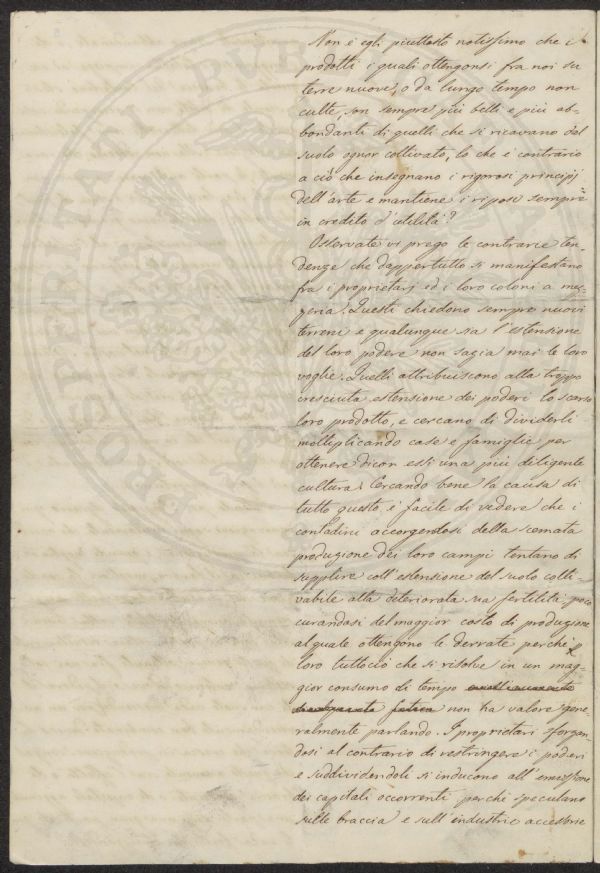 Non è egli piuttosto notissimo che i
prodotti i quali ottengonsi fra noi su
terre nuove, o da lungo tempo non
culte, son sempre più belli e più ab-
bondanti di quelli che si ricavano dal
suolo ognor coltivato, lo che è contrario
a ciò che insegnano i rigorosi principj
dell'arte e mantiene i riposi sempre
in credito d'utilità?
Osservate vi prego le contrarie ten-
denze che dappertutto si manifestano
fra i proprietarj ed i loro coloni a mez-
zeria. Questi chiedono sempre nuovi
terreni e qualunque sia l'estensione
del loro podere non sazia mai le loro
voglie. Quelli attribuiscono alla troppo
cresciuta estensione dei poderi lo scarso
loro prodotto, e cercano di dividerli
moltiplicando case e famiglie per
ottenere dicon essi una più diligente
cultura. Cercando bene la causa di
tutto questo, è facile di vedere che i
contadini accorgendosi della scemata
produzione dei loro campi tentano di
supplire coll'estensione del suolo colti-
vabile alla deteriorata sua fertilità poco
curandosi del maggior costo di produzione
al quale ottengono le derrate perchè
loro tuttociò che si risolve in un mag-
gior consumo di tempo
fatica non ha valore gene-
ralmente parlando. I proprietari sforzan-
dosi al contrario di restringere i poderi
e suddividendoli si inducono all'emissione
dei capitali occorrenti perchè speculano
sulle braccia e sull'industrie accessorie
PVB